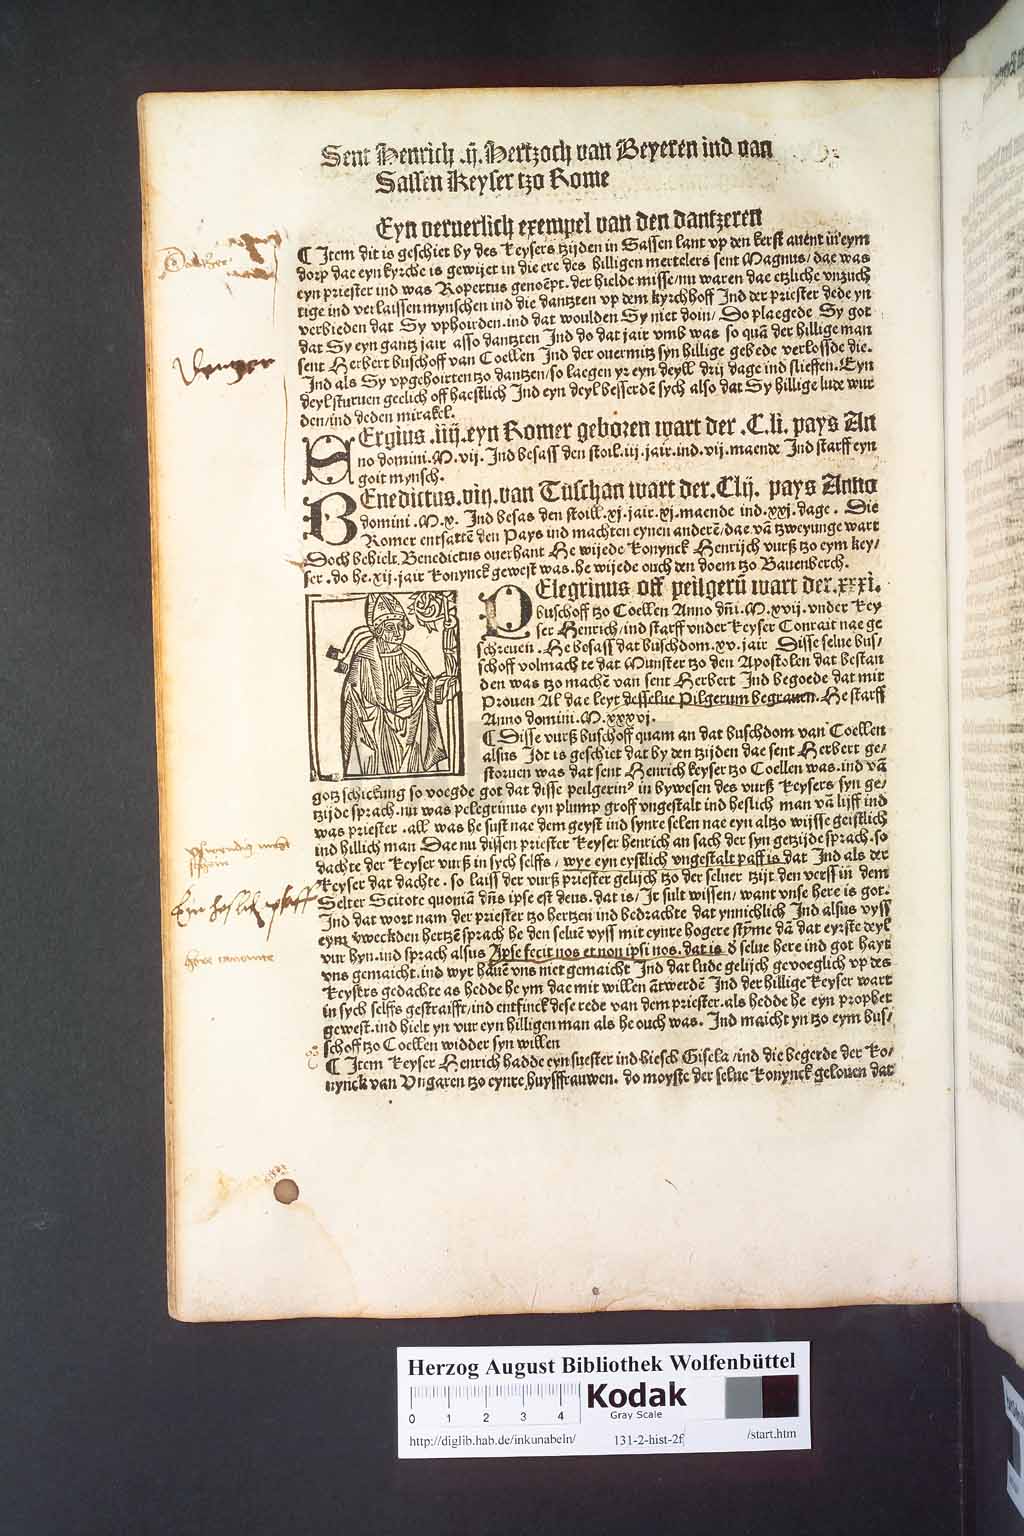 Sent Henrich .ij. Hertzoch van Beyeren ind van
Sassen Keyser tzo Rome
Eyn veruerlich exempel van den dantzeren
¶ Item dit is geschiet by des keysers tzijden in Sassen lant vp den kerst auent in eym
dorp dae eyn kyrche is gewijet in die ere des hilligen mertelers sent Magnus/ dae was
eyn priester ind was Ropertus genoēpt. der hielde misse/ nu waren dae etzliche vnzuch
tige ind verlaissen mynschen ind die dantzten vp dem kyrchhoff Ind der priester dede yn
verbieden dat Sy vphoirden. ind dat woulden Sy niet doin/ Do plaegede Sy got
dat Sy eyn gantz jair asso dantzten Ind do dat jair vmb was so quā der hillige man
sent Herbert buschoff van Coellen Ind der ouermitz syn hillige gebede verlossde die.
Ind als Sy vpgehoirten tzo dantzen/ so laegen yr eyn deyll drij dage ind slieffen. Eyn
deyl sturuen geelich off haestlich Ind eyn deyl besserdē sych also dat Sy hillige lude wur
den/ ind deden mirakel.
SErgius .iiij. eyn Romer geboren wart der .C.li. pays An
no domini .M.vij. Ind besass den stoil .iij. jair. ind .vij. maende Ind starff eyn
goit mynsch.
BEnedictus .viij. van Tuschan wart der .Clij. pays Anno
domini .M.x. Ind besas den stoill .xj. jair .xj. maende ind .xxj. dage . Die
Romer entsattē den Pays ind machten eynen anderē/ dae vā tzweyunge wart
Doch behielt Benedictus ouerhant He wijede Konynck Henrijch vurß tzo eym key/
ser . do he .xij. jair Konynck gewest was. he wijede ouch den doem tzo Bauenberch.
PElegrinus off peilgerū wart der .xxxi.
buschoff tzo Coellen Anno dñi .M.xvij. vnder Key
ser Henrich/ ind starff vnder keyser Conrait nae ge
schreuen . He besass dat buschdom .xv. jair Disse selue bus/
schoff volmachte dat Munster tzo den Apostolen dat bestan
den was tzo machē van sent Herbert Ind begoede dat mit
Prouen Al dae leyt desselue Pilgerum begrauen. He starff
Anno domini .M.xxxvj.
¶ Disse vurß buschoff quam an dat buschdom van Coellen
alsus Idt is geschiet dat by den tzijden dae sent Herbert ge/
storuen was dat sent Henrich keyser tzo Coellen was. ind vā
gotz schickung so voegde got dat disse peilgerin⁹ in bywesen des vurß keysers syn ge/
tzijde sprach. nu was pelegrinus eyn plump groff vngestalt ind heslich man vā lijff ind
was priester . all was he sust nae dem geyst ind synre selen nae eyn altzo wijsse geistlich
ind hillich man Dae nu dissen priester keyser henrich an sach der syn getzijde sprach. so
dachte der keyser vurß in sych selffs/ wye eyn eyslich vngestalt paff is dat Ind als der
keyser dat dachte. so laiss der vurß priester gelijch tzo der seluer tzijt den verss in dem
Selter Scitote quoniā dñs ipse est deus. dat is/ Ir sult wissen/ want vnse here is got.
Ind dat wort nam der priester tzo hertzen ind bedrachte dat ynnichlich Ind alsus vyss
eym vweckden hertzē sprach he den seluē vyss mit eynre hogere stȳme dā dat eyrste deyl
vur hyn. ind sprach alsus Ipse fecit nos et non ipsi nos. dat is d selue here ind got hayt
vns gemaicht. ind wyr hauē vns niet gemaicht Ind dat lude gelijch gevoeglich vp des
keysers gedachte as hedde he ym dae mit willen ātwerdē Ind der hillige keyser wart
in sych selffs gestraifft/ ind entfinck dese rede van dem priester. als hedde he eyn prophet
gewest. ind hielt yn vur eyn hilligen man als he ouch was. Ind maicht yn tzo eym bus/
schoff tzo Coellen widder syn willen
¶ Item keyser Henrich hadde eyn suester ind hiesch Gisela/ ind die begerde der Ko/
nynck van Vngaren tzo eynre huysffrauwen. do moyste der selue Konynck gelouen dat
Dentzer
Eyn heslich pfaff
Herzog August Bibliothek Wolfenbüttel
Kodak
Gray Scale
0 1 2 3 4
http://diglib.hab.de/inkunabeln/ 131-2-hist-2f /start.htm